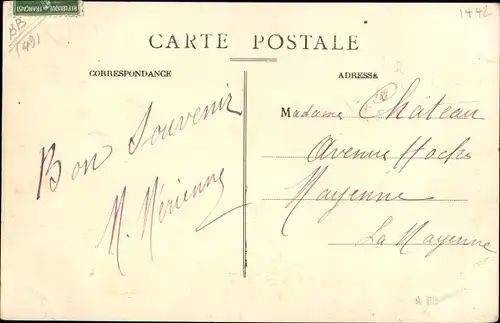 REPUBLIQUE FRANÇAISE
BB
1491
1442
CARTE POSTALE
CORRESPONDANCE
ADRESSE
Bon Souvenir
M. Mérienne
Madame Château
Avenue Hoche
Mayenne
La Mayenne